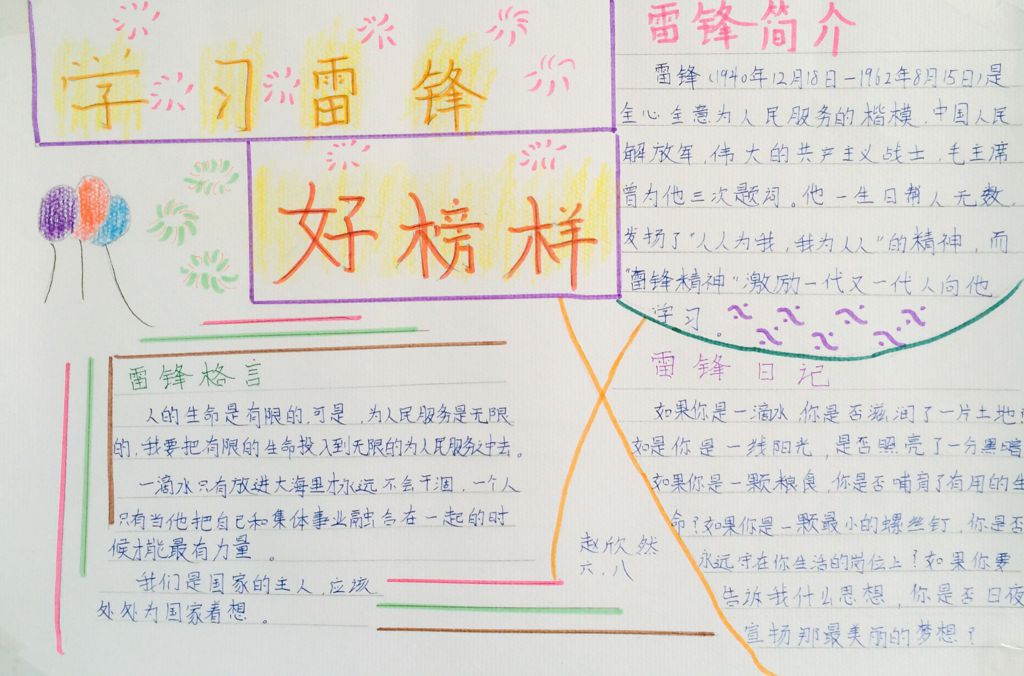 学习雷锋
好榜样
雷锋简介
雷锋（1940年12月18日—1962年8月15日）是
全心全意为人民服务的楷模，中国人民
解放军，伟大的共产主义战士，毛主席
曾为他三次题词。他一生日帮人无数，
发扬了“人人为我，我为人人”的精神，而
“雷锋精神”激励一代又一代人向他
学习。
雷锋格言
人的生命是有限的，可是，为人民服务是无限
的，我要把有限的生命投入到无限的为人民服务之中去。
一滴水只有放进大海里才永远不会干涸，一个人
只有当他把自己和集体事业融合在一起的时
候才能最有力量。
我们是国家的主人，应该
处处为国家着想。
赵欣然
六.八
雷锋日记
如果你是一滴水，你是否滋润了一片土地？
如是你是一线阳光，是否照亮了一分黑暗
如果你是一颗粮食，你是否哺育了有用的生
命？如果你是一颗最小的螺丝钉，你是否
永远守在你生活的岗位上？如果你要
告诉我什么思想，你是否日夜
宣扬那最美丽的梦想？